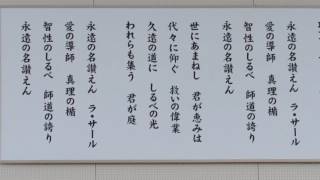 永遠の名讃えん ラ・サール
愛の導師 真理の楯
智性のしるべ 師道の誇り
永遠の名讃えん
世にあまねし 君が恵みは
代々に仰ぐ 救いの偉業
久遠の道に しるべの光
われらも集う 君が庭
永遠の名讃えん ラ・サール
愛の導師 真理の楯
智性のしるべ 師道の誇り
永遠の名讃えん